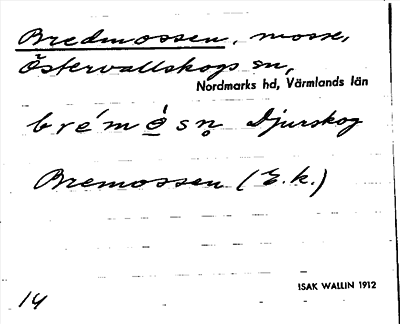 Bredmossen, mosse,
Östervallskogs sn,
Nordmarks hd, Värmlands län
Djurskog
Bremossen (E.k.)
ISAK WALLIN 1912
14